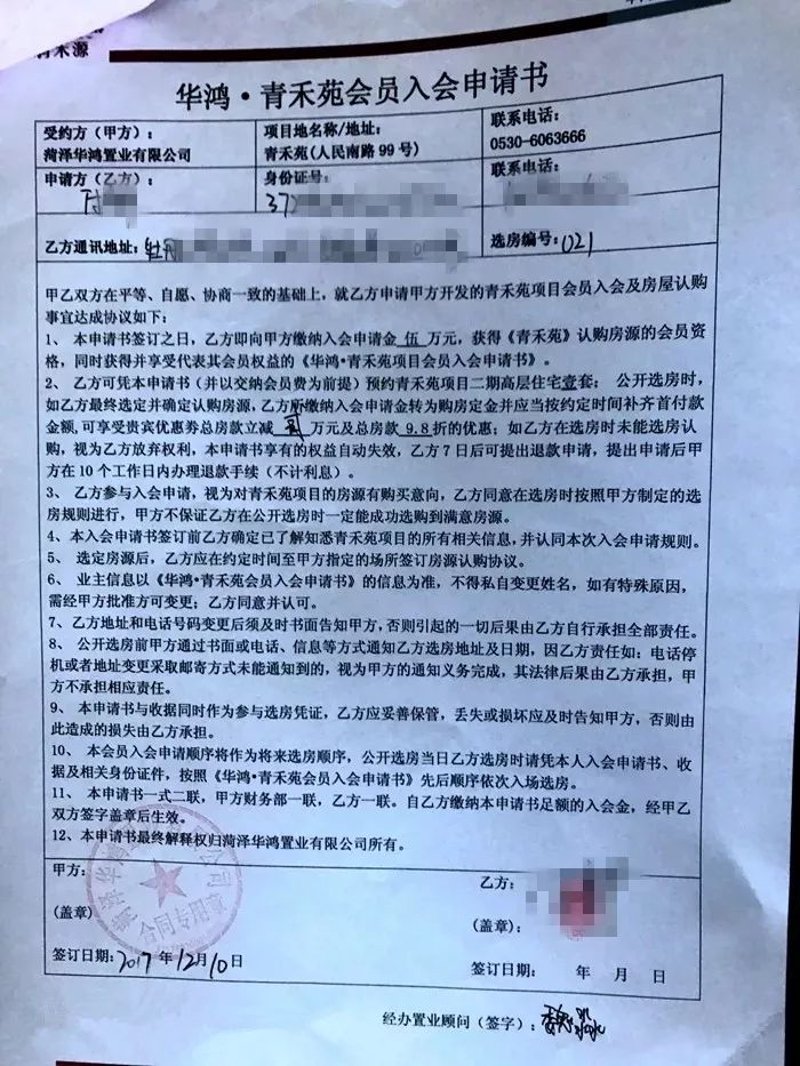 禾源
华鸿·青禾苑会员入会申请书
受约方（甲方）：
菏泽华鸿置业有限公司
项目地名称/地址：
青禾苑(人民南路99号)
联系电话：
0530-6063666
申请方（乙方）：
身份证号：
372
联系电话：
乙方通讯地址：牡丹
选房编号：021
甲乙双方在平等、自愿、协商一致的基础上，就乙方申请甲方开发的青禾苑项目会员入会及房屋认购
事宜达成协议如下：
1、 本申请书签订之日，乙方即向甲方缴纳入会申请金 伍 万元，获得《青禾苑》认购房源的会员资
格，同时获得并享受代表其会员权益的《华鸿·青禾苑项目会员入会申请书》。
2、 乙方可凭本申请书（并以交纳会员费为前提）预约青禾苑项目二期高层住宅壹套； 公开选房时，
如乙方最终选定并确定认购房源，乙方所缴纳入会申请金转为购房定金并应当按约定时间补齐首付款
金额,可享受贵宾优惠券总房款立减 贰 万元及总房款 9.8 折的优惠；如乙方在选房时未能选房认
购，视为乙方放弃权利，本申请书享有的权益自动失效，乙方7日后可提出退款申请，提出申请后甲
方在10个工作日内办理退款手续（不计利息）。
3、 乙方参与入会申请，视为对青禾苑项目的房源有购买意向，乙方同意在选房时按照甲方制定的选
房规则进行，甲方不保证乙方在公开选房时一定能成功选购到满意房源。
4、本入会申请书签订前乙方确定已了解知悉青禾苑项目的所有相关信息，并认同本次入会申请规则。
5、 选定房源后，乙方应在约定时间至甲方指定的场所签订房源认购协议。
6、 业主信息以《华鸿·青禾苑会员入会申请书》的信息为准，不得私自变更姓名，如有特殊原因，
需经甲方批准方可变更；乙方同意并认可。
7、乙方地址和电话号码变更后须及时书面告知甲方，否则引起的一切后果由乙方自行承担全部责任。
8、 公开选房前甲方通过书面或电话、信息等方式通知乙方选房地址及日期，因乙方责任如：电话停
机或者地址变更采取邮寄方式未能通知到的，视为甲方的通知义务完成，其法律后果由乙方承担，甲
方不承担相应责任。
9、 本申请书与收据同时作为参与选房凭证，乙方应妥善保管，丢失或损坏应及时告知甲方，否则由
此造成的损失由乙方承担。
10、 本会员入会申请顺序将作为将来选房顺序，公开选房当日乙方选房时请凭本人入会申请书、收
据及相关身份证件，按照《华鸿·青禾苑会员入会申请书》先后顺序依次入场选房。
11、 本申请书一式二联，甲方财务部一联，乙方一联。自乙方缴纳本申请书足额的入会金，经甲乙
双方签字盖章后生效。
12、本申请书最终解释权归菏泽华鸿置业有限公司所有。
甲方：
乙方：
(盖章)
(盖章)：
合同专用章
签订日期：2017年12月10日
签订日期： 年 月 日
经办置业顾问（签字）：